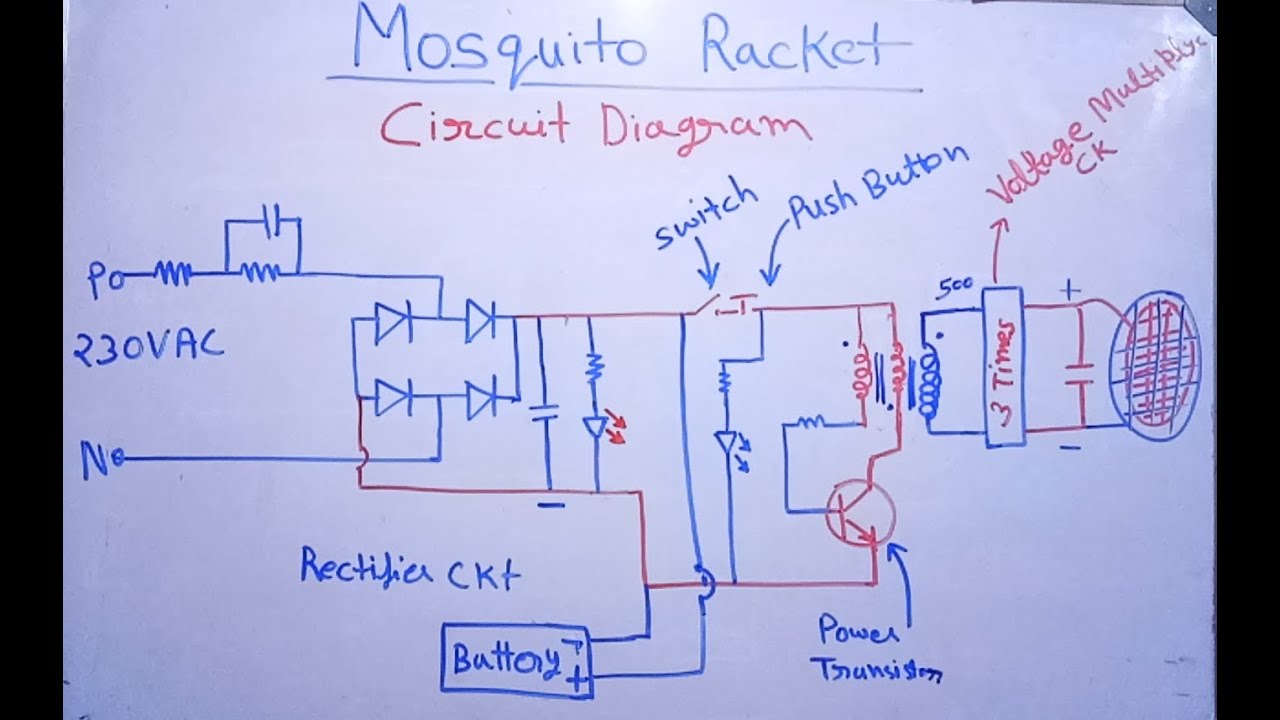 Mosquito Racket
Circuit Diagram
Voltage Multiplier
CK
Switch
Push Button
P
230VAC
N
500
3 Times
+
-
-
Rectifier CKt
Battery
-
+
Power
Transistor